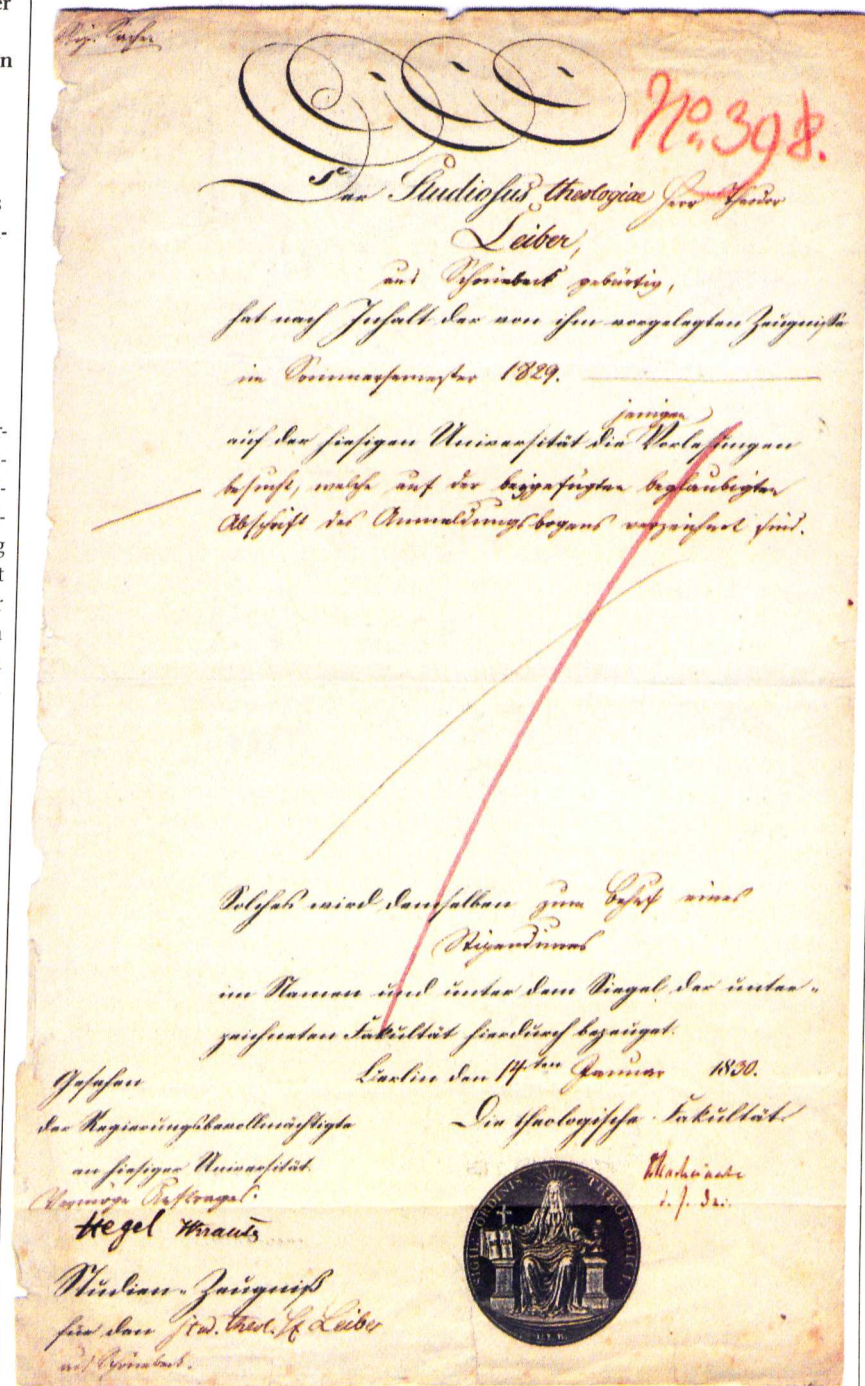 No. 398.
Der Studiosus theologiae Herr Theodor
Leiber,
aus Schönebeck gebürtig,
hat nach Inhalt der von ihm vorgelegten Zeugnisse
im Sommersemester 1829.
auf der hiesigen Universität diejenigen Vorlesungen
besucht, welche auf der beigefügten beglaubigten
Abschrift des Anmeldungsbogens verzeichnet sind.
Solches wird demselben zum Behuf eines
Stipendiums
im Namen und unter dem Siegel der unter-
zeichneten Fakultät hierdurch bezeuget.
Berlin den 14ten Januar 1830.
Die theologische Fakultät
Gesehen
der Regierungsbevollmächtigte
an hiesiger Universität.
Vermöge Auftrages.
Hegel Krause
Marheineke
SIGIL ORDINIS THEOLOGICI
Studien-Zeugniß
für den stud. theol. H. Leiber
aus Schönebeck.